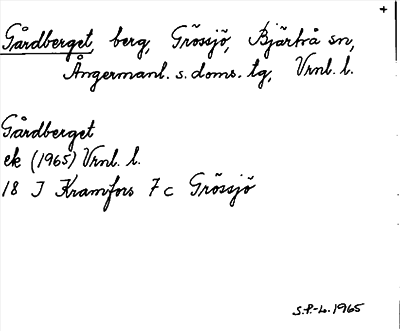 +
Gårdberget, berg, Grössjö, Bjärtrå sn,
Ångermanl. s. doms. tg, Vrnl. l.
Gårdberget
ek (1965) Vrnl. l.
18 I Kramfors 7 c Grössjö
S.P-L. 1965